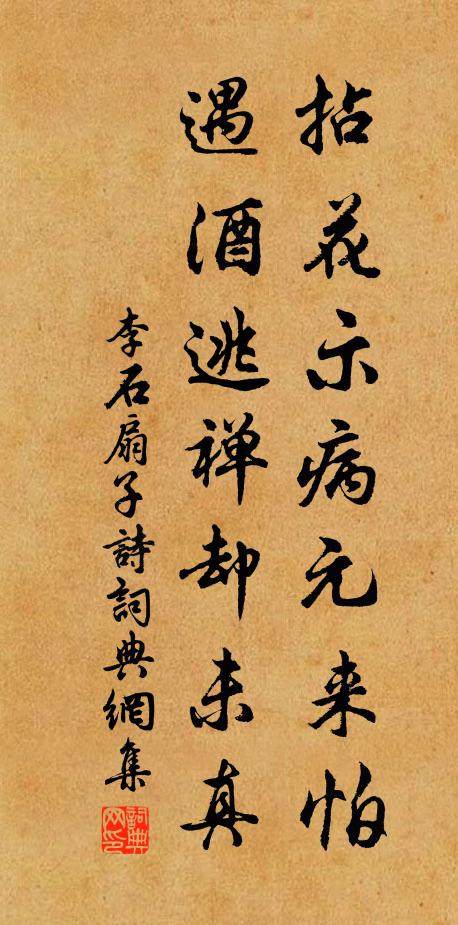 拈花示病元来怕
遇酒逃禅却未真
李石扇子詩詞典網集
詞典网印